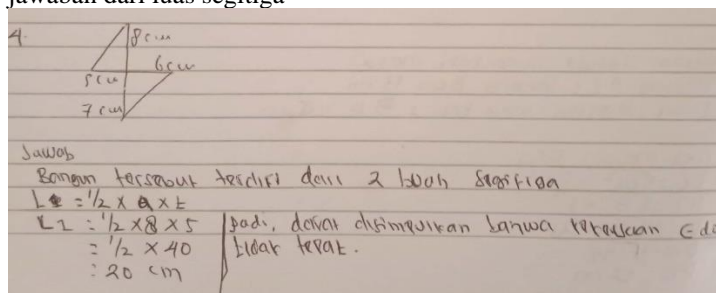 jawaban dari luas segitiga
4.
8 cm
6 cm
5 cm
7 cm
Jawab
Bangun tersebut terdiri dari 2 buah segitiga
L = 1/2 x a x t
L1 = 1/2 x 8 x 5
= 1/2 x 40
: 20 cm
Jadi, dapat disimpulkan bahwa
tidak tepat.